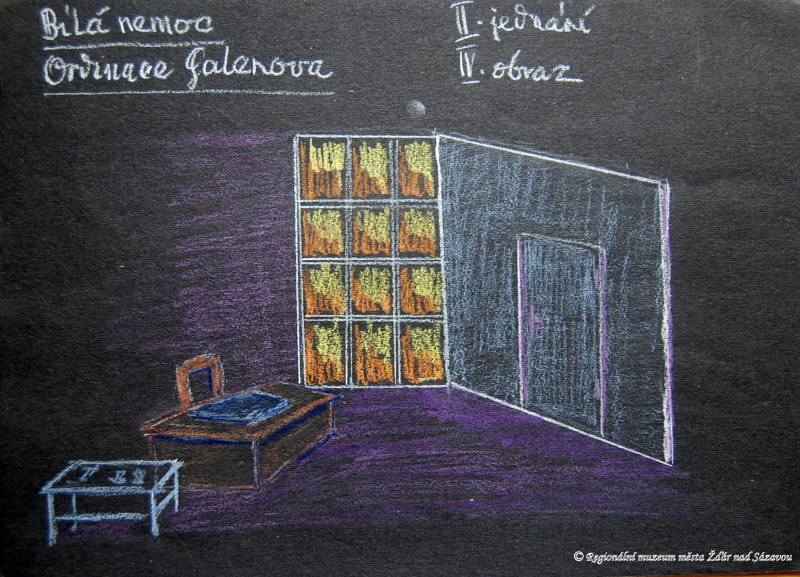 Bílá nemoc
Ordinace Galenova
II. jednání
IV. obraz
© Regionální muzeum města Žďár nad Sázavou